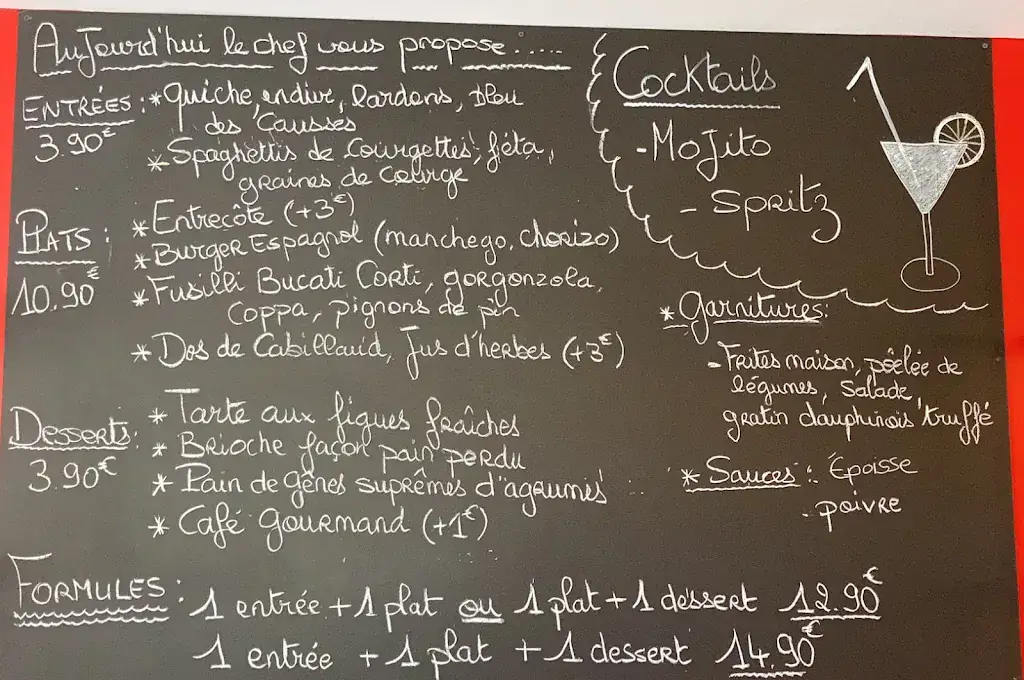 Aujourd'hui le chef vous propose.....
ENTRÉES : * Quiche, endive, lardons, bleu
des Causses
3.90€
* Spaghettis de courgettes, féta,
graines de courge
PLATS :
10.90€
* Entrecôte (+3€)
* Burger Espagnol (manchego, chorizo)
* Fusilli Bucati Corti, gorgonzola,
coppa, pignons de pin
* Dos de Cabillaud, Jus d'herbes (+3€)
Desserts :
3.90€
* Tarte aux figues fraîches
* Brioche façon pain perdu
* Pain de gênes suprêmes d'agrumes
* Café gourmand (+1€)
Cocktails
- Mojito
- Spritz
* Garnitures:
- Frites maison, pôêlée de
légumes, salade,
gratin dauphinois truffé
* Sauces : Époisse
. poivre
FORMULES : 1 entrée + 1 plat ou 1 plat + 1 dessert 12.90€
1 entrée + 1 plat + 1 dessert 14.90€